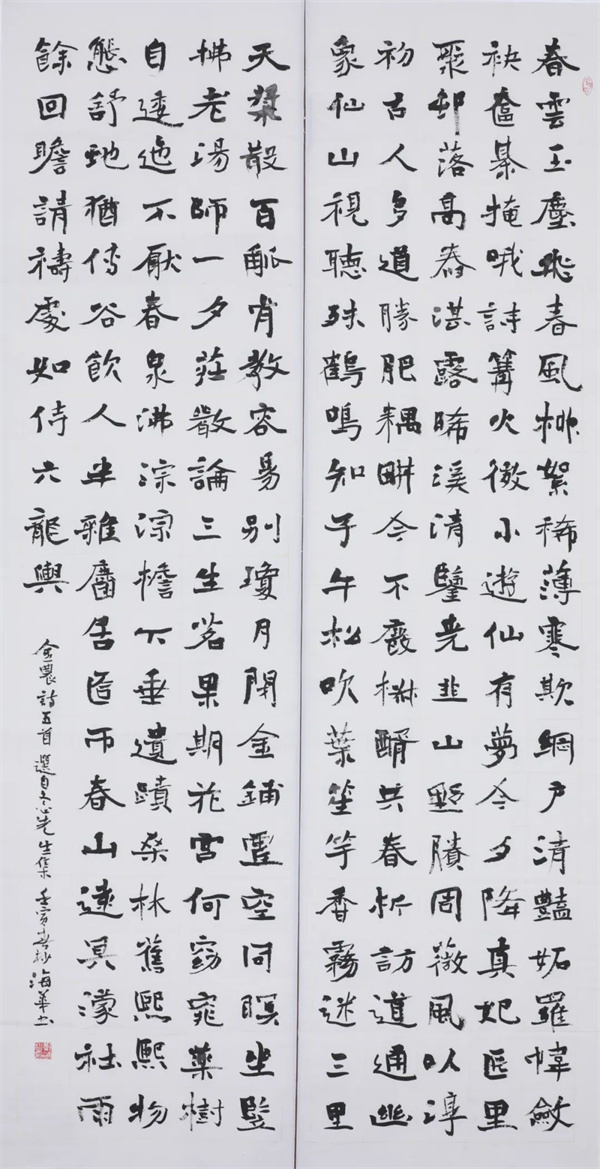 春雲玉塵飛春風柳絮稀薄寒欺綱戶清豔妬羅幃斂
袂奩棊掩哦詩篝火微小遊仙有夢今夕降真妃匝里
聚邨落高舂湛露晞溪清鑒堯韭山黝周薇風以淳
初古人多道勝肥耦畊今不廢椒醑共春祈訪道通幽
象仙山視聽殊鶴鳴知子午松吹葉笙竽香霧迷三里
天漿散百觚肯教容易別瓊月閉金鋪靈空同瞑坐豎
拂老湯師一夕莊嚴論三生茗果期花宮何窈窕藥樹
自逶迤不厭春泉沸淙淙檐下垂遺蹟桑林舊熙熙物
態舒地猶傳谷飲人半雜麕居匼帀春山遠冥濛社雨
餘回瞻請禱處如侍六龍輿
金農詩五首選自冬心先生集壬寅春杪海華書